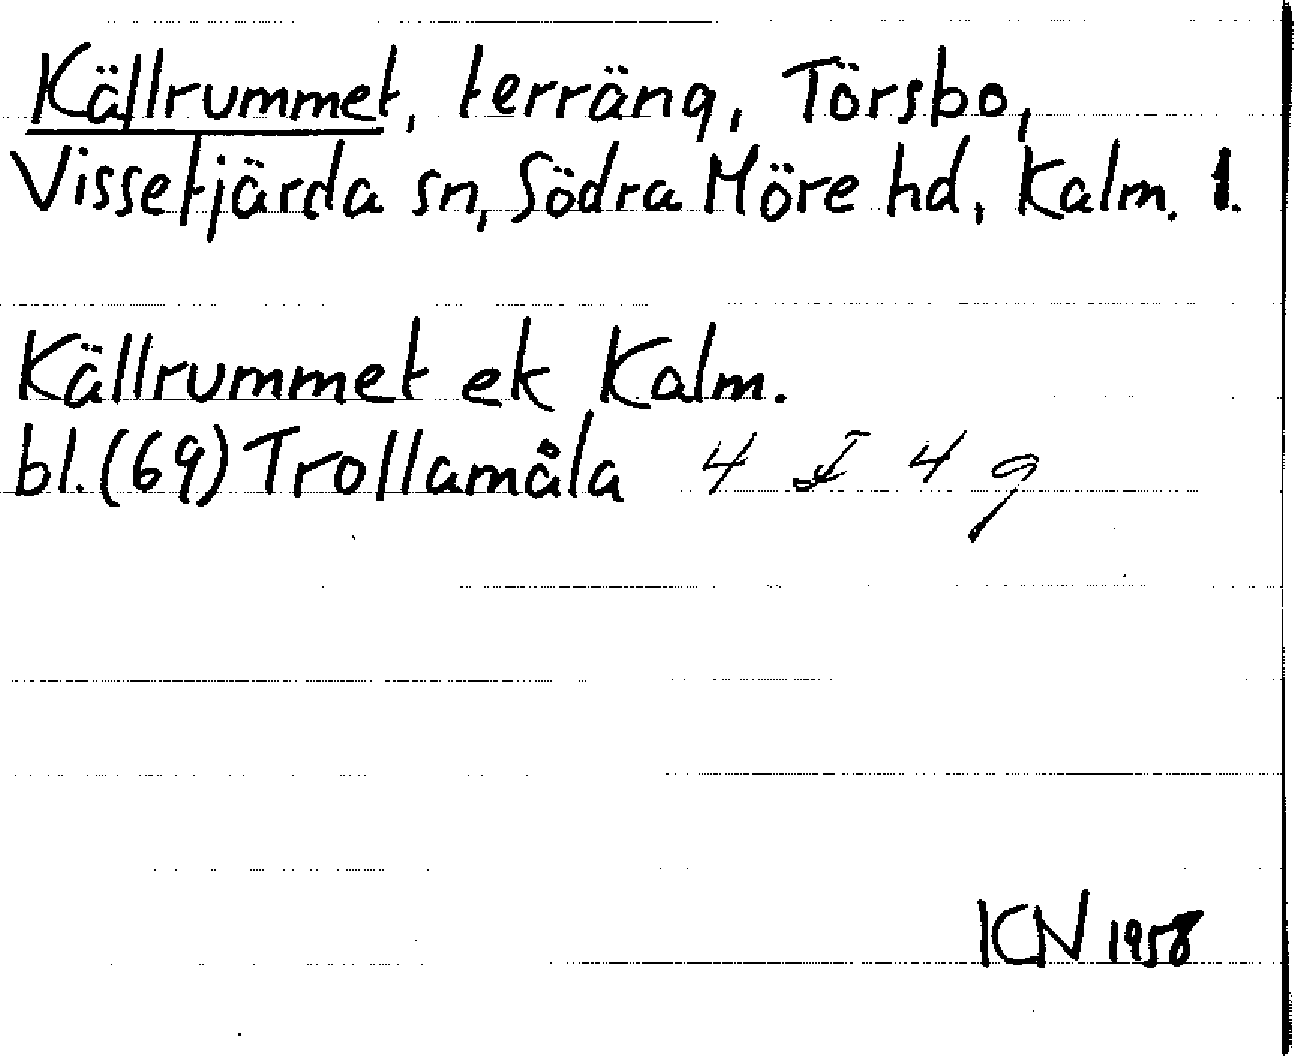 Källrummet, terräng, Törsbo,
Vissefjärda sn, Södra Möre hd, Kalm. l.
Källrummet ek Kalm.
bl. (69) Trollamåla 4 F 4 g
KN 1958